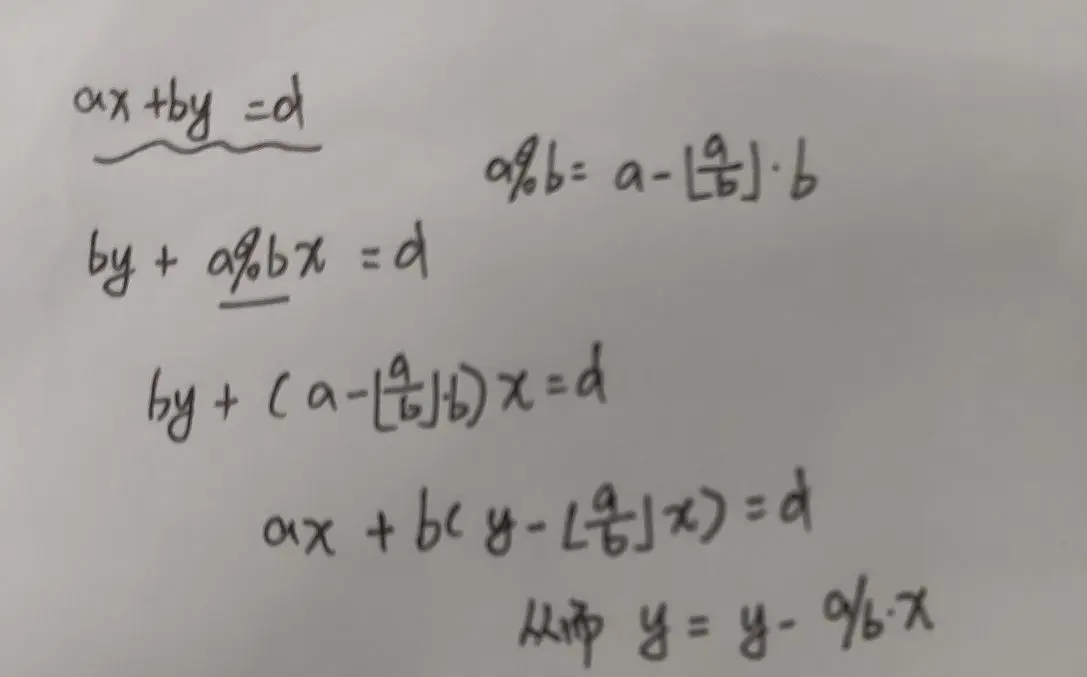 ax+by=d
a%b=a-⌊a/b⌋·b
by+a%bx=d
by+(a-⌊a/b⌋·b)x=d
ax+b(y-⌊a/b⌋x)=d
从而 y=y-a/b·x